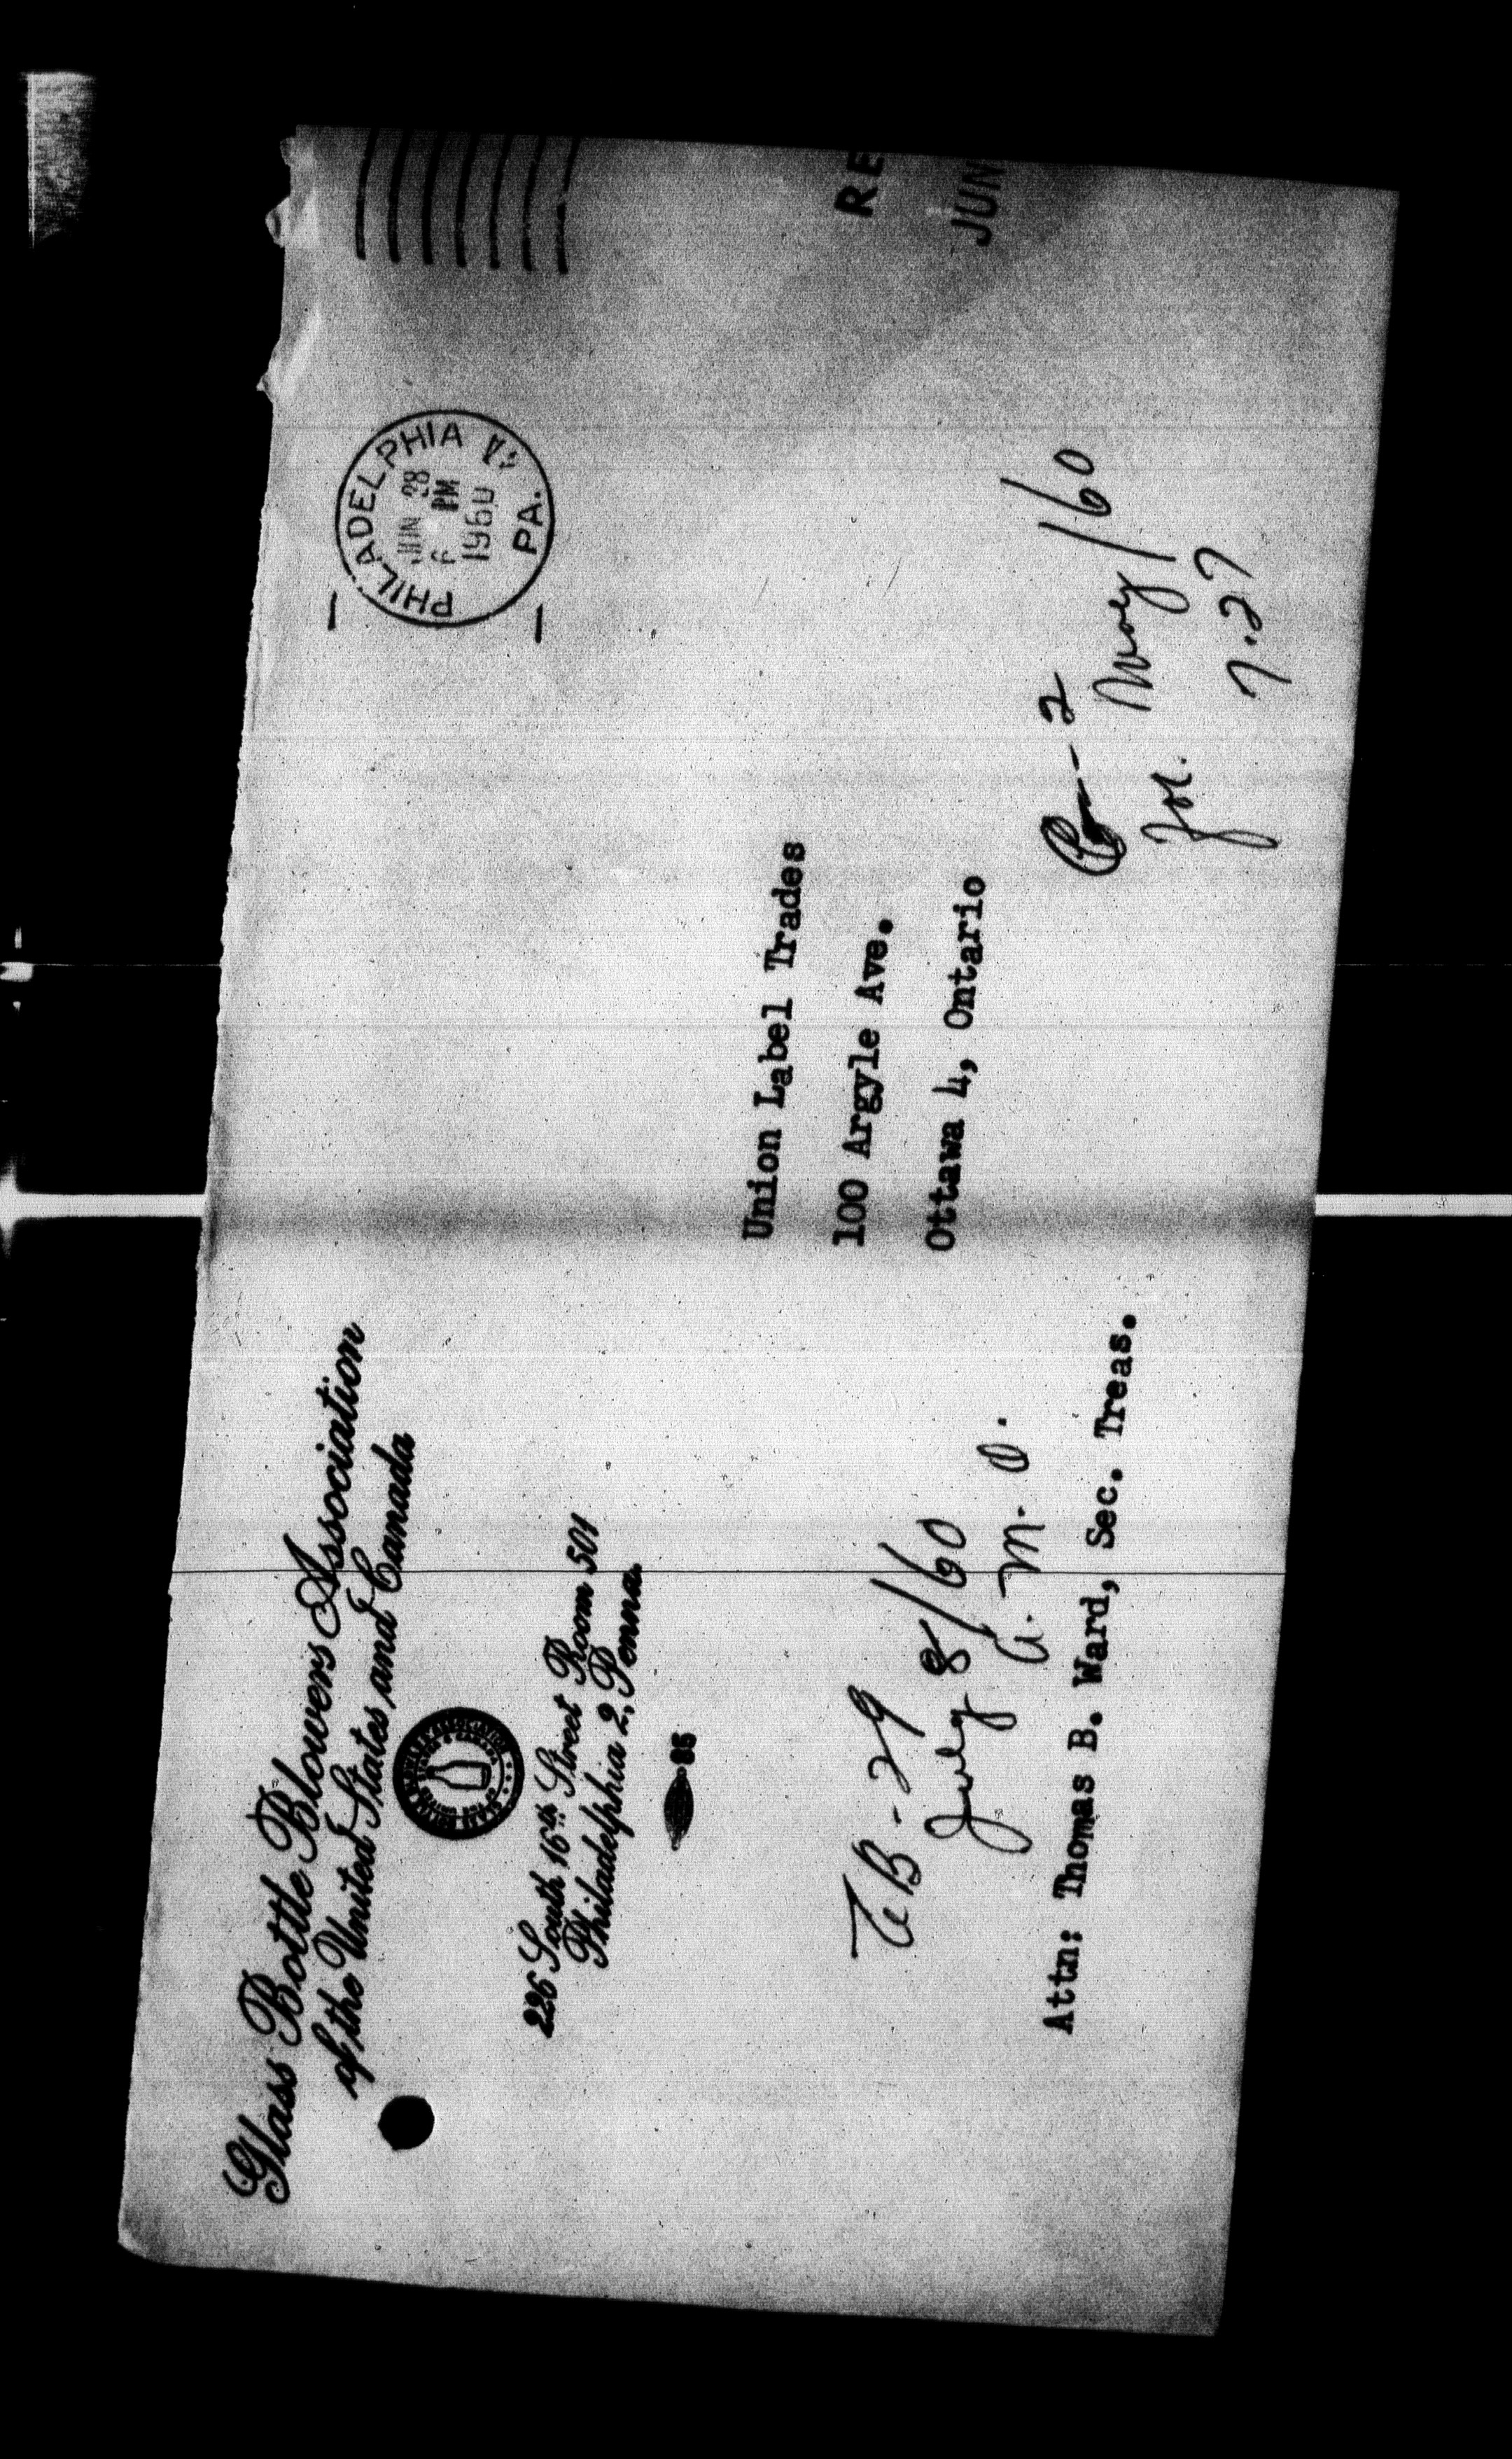 Glass Bottle Blowers Association
of the United States and Canada
226 South 16th Street Room 501
Philadelphia 2, Penna.
85
PHILADELPHIA
PA.
JUN 28
PM
1960
RE
JUN
Union Label Trades
100 Argyle Ave.
Ottawa 4, Ontario
B-29
July 8/60
A. M. D.
Attn: Thomas B. Ward, Sec. Treas.
2
May /60
7.27